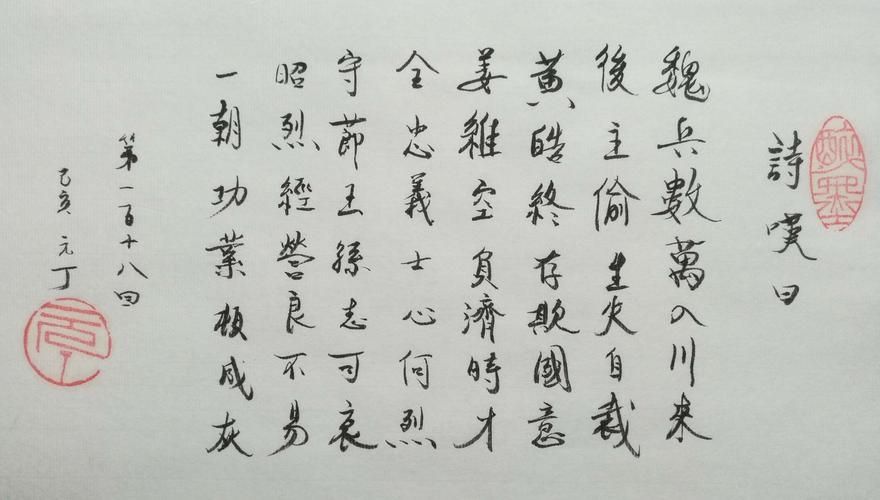 詩嘆曰
魏兵數萬入川来
後主偷生失自裁
黄皓終存欺國意
姜維空負濟時才
全忠義士心何烈
守節王孫志可哀
昭烈經營良不易
一朝功業頓成灰
第一百十八回
己亥元丁
元丁